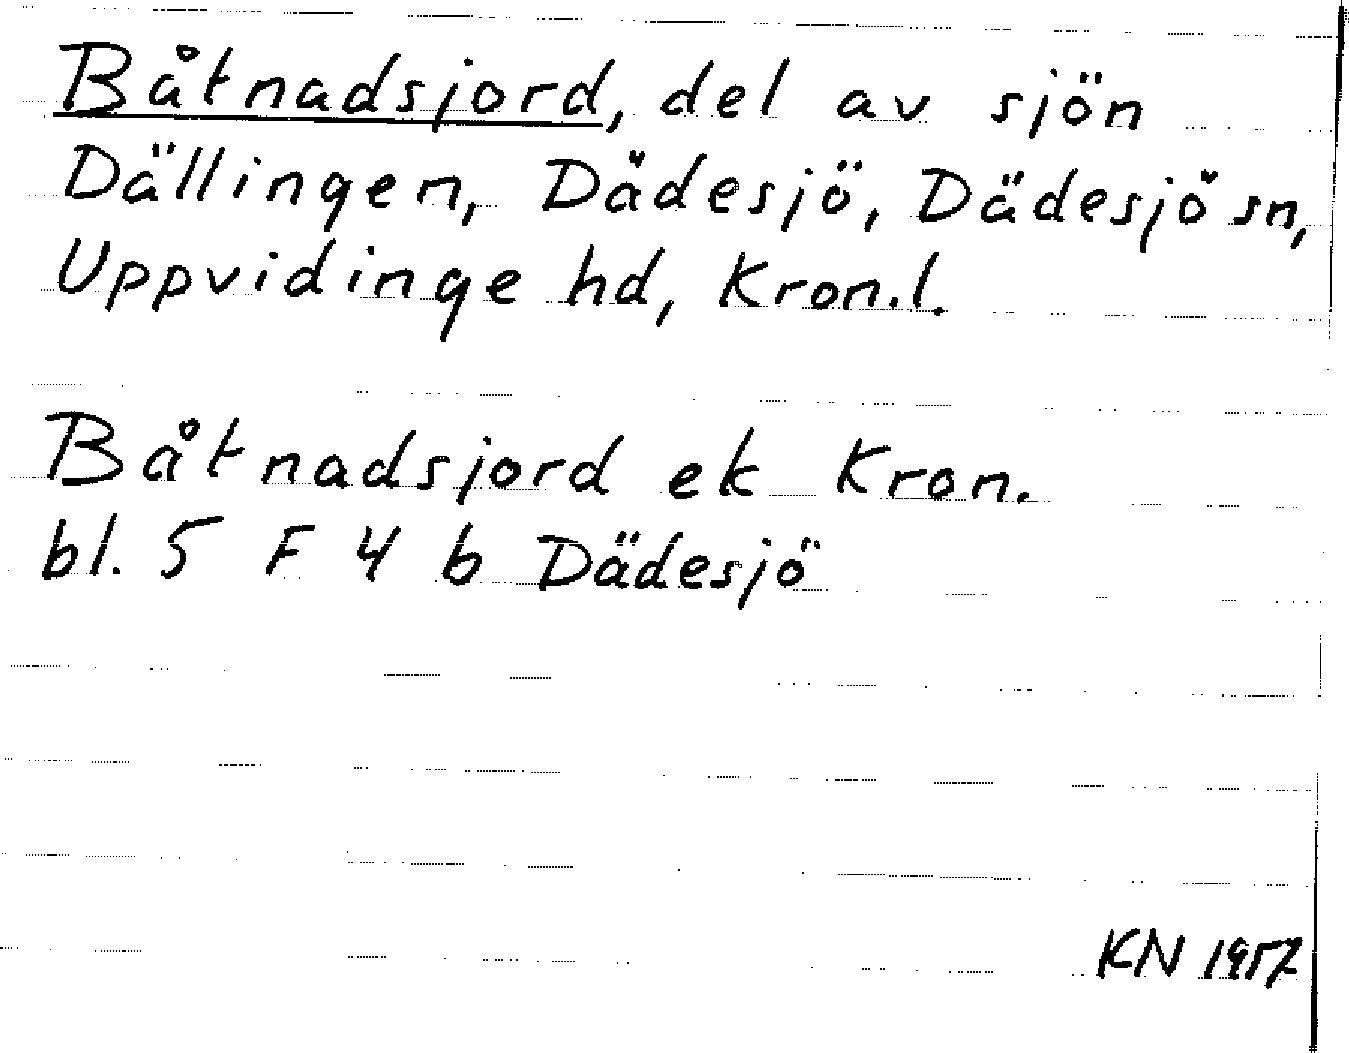 Båtnadsjord, del av sjön
Dällingen, Dädesjö, Dädesjö sn,
Uppvidinge hd, Kron.l.
Båtnadsjord ek Kron.
bl. 5 F 4 b Dädesjö
KN 1957